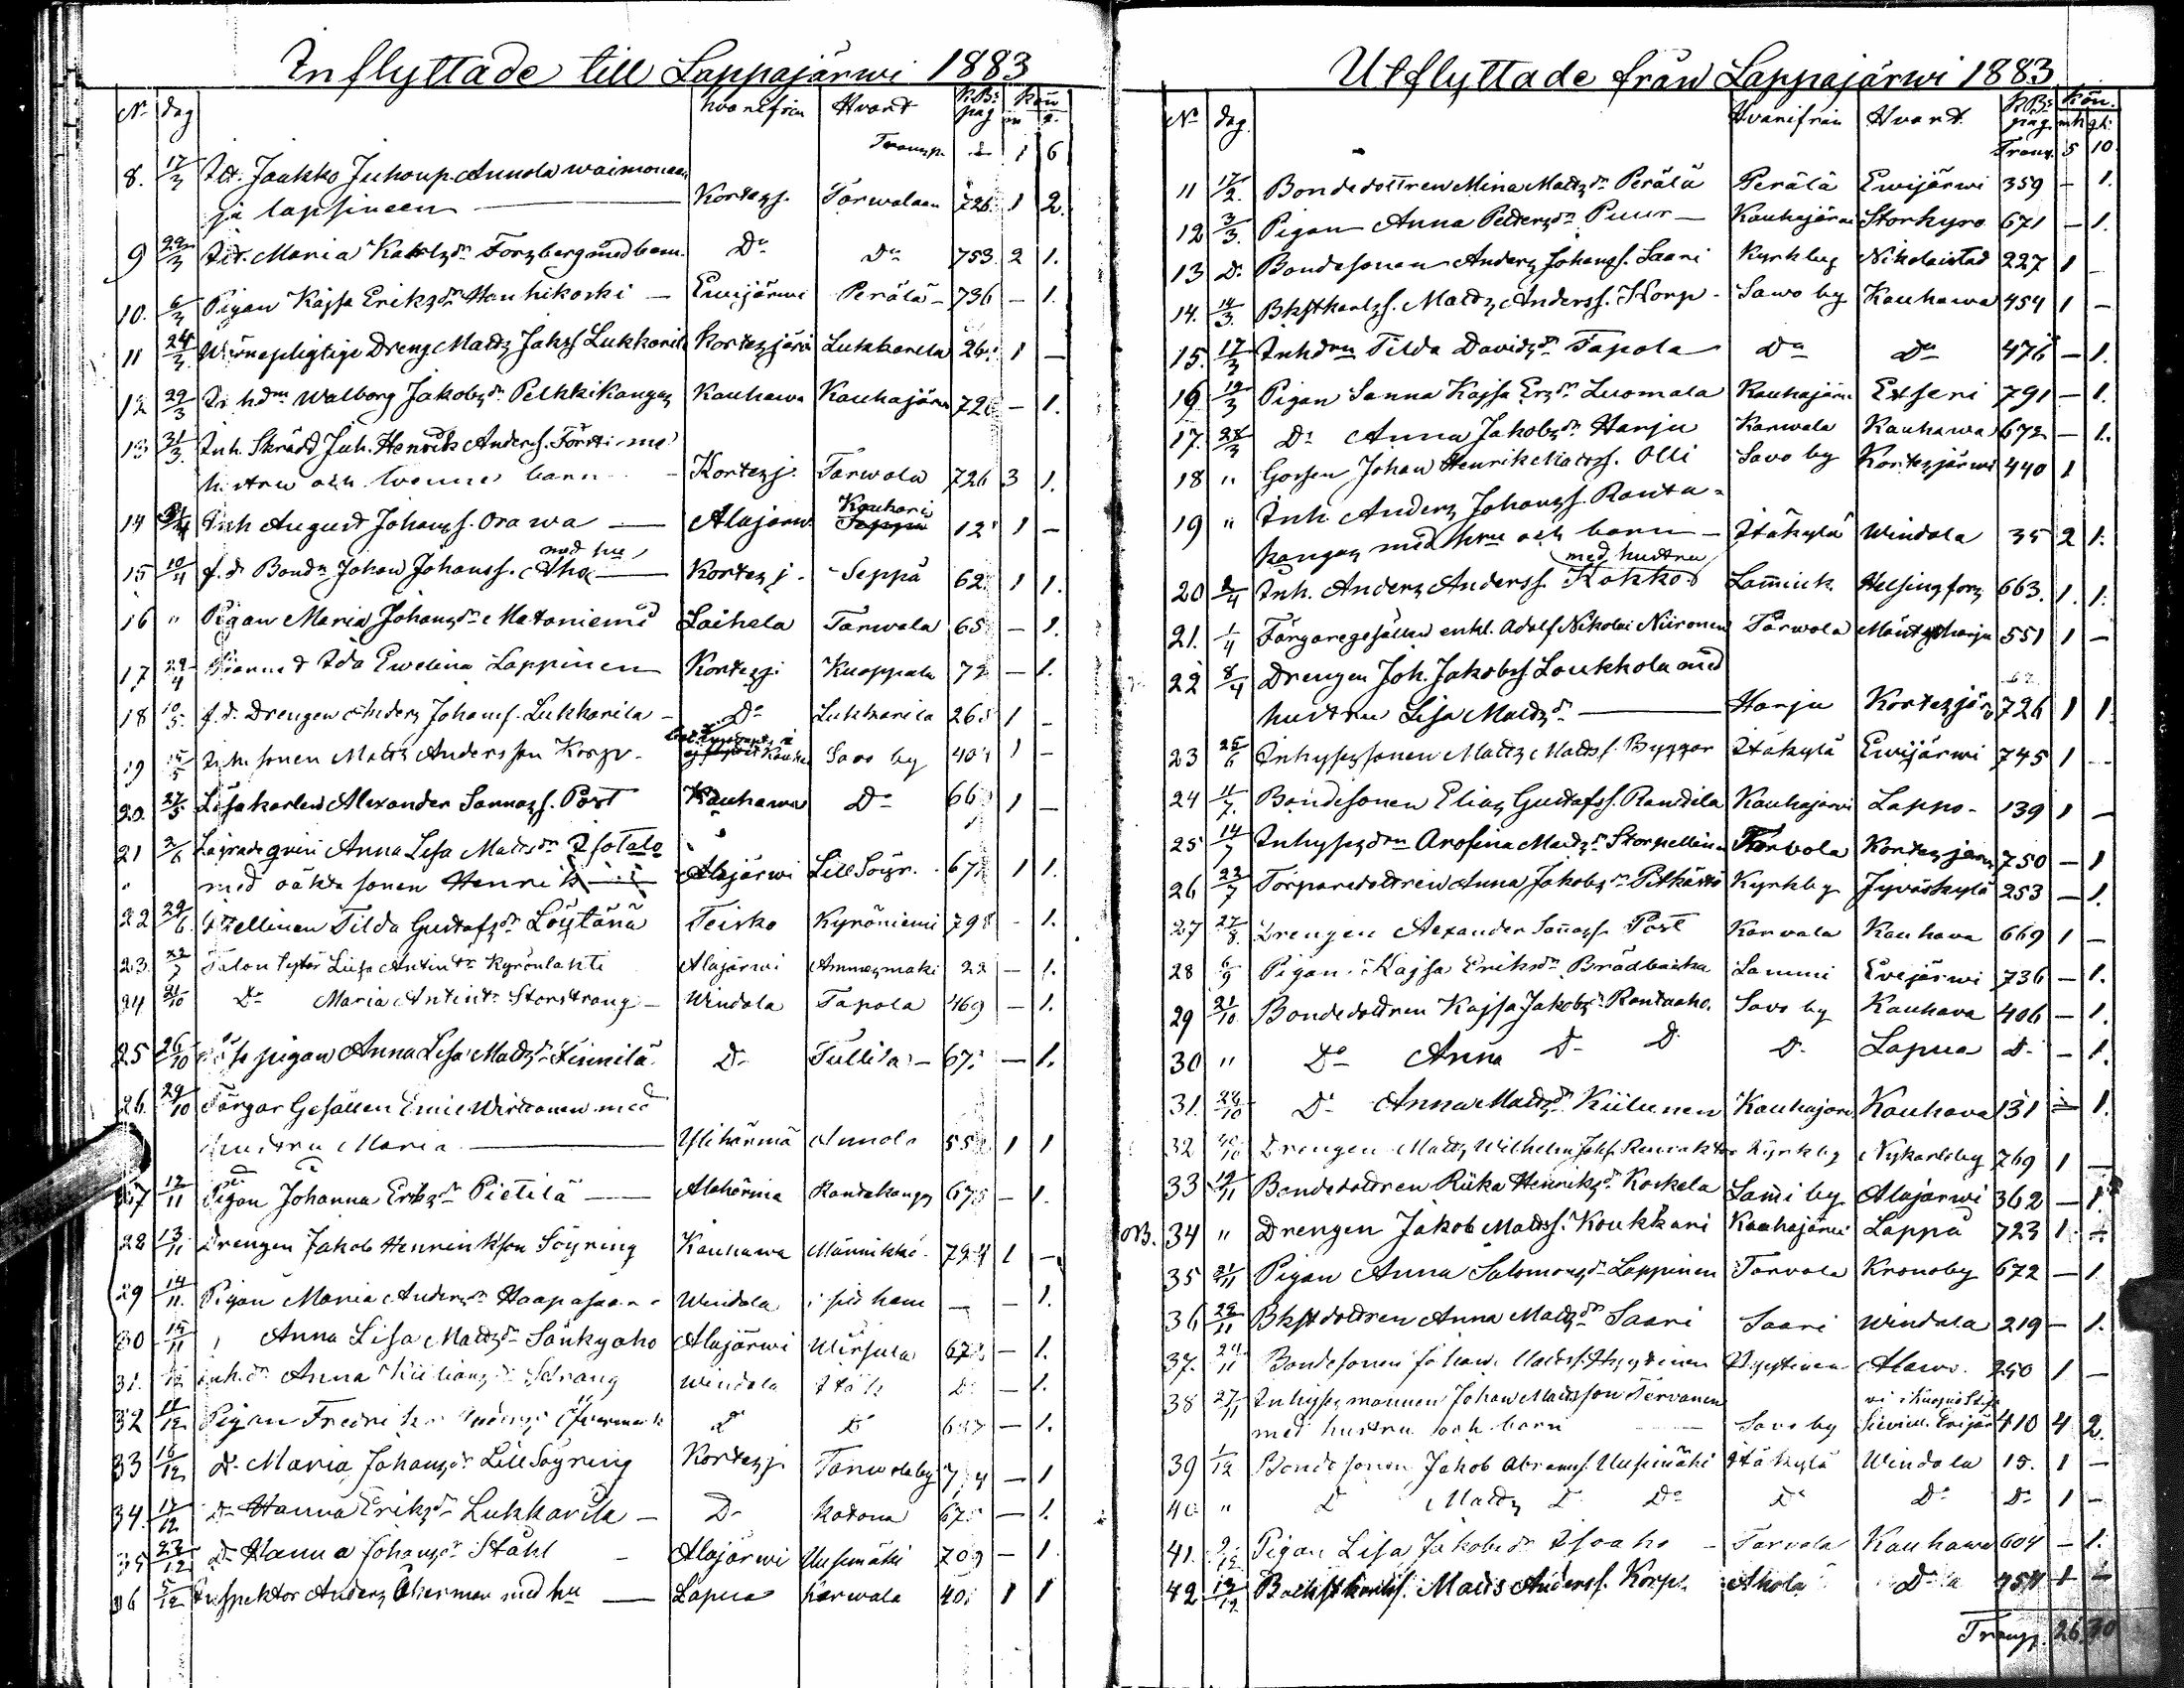 Inflyttade till Lappajärwi 1883
No dag hvarifrån Hvart K.B:s pag kön m q.
Transp. 1 6
8. 17/3 Itt. Jaakko Juhonp. Annola waimonsa
ja lapsineen Kortesj. Tarwolaan 726 1 2.
9 22/3 Itt. Maria Karlsdr Forsberg med barn. Do Do 753. 2 1.
10. 6/3 Pigan Kajsa Eriksdr Hauhikoski — Ewijärwi Perälä — 736 — 1.
11 24/3 Wärnepligtige Dreng Matts Jakss Lukkarila Kortesjärwi Lukkarila 26 1 —
12 29/3 Inhdrn Walborg Jakobsdr Pelkkikangas Kauhawa Kauhajärwi 726 — 1.
13 31/3 Inh. Skrädd Joh. Henrik Anderss. Försti med
hustru och barn Kortesj. Tarwola 726 3 1.
14 Inh August Johanss. Orawa — Alajärwi Kauhari 12 1 —
15 10/4 f.d. Bondn Johan Johanss. Aho med hu — Kortesj. Seppä 62 1 1.
16 " Pigan Maria Johansdr Mataniemi Laihela Tarwola 65 — 1.
17 29/4 Ida Ewelina Lappinen Kortesj. Kuoppala 72 — 1.
18 10/5 f.d. Drengen Anders Johanss. Lukkarila — Do Lukkarila 265 1 —
19 15/5 Inh. sonen Matts Andersson Korp — Savo by 404 1 —
20. 27/5 Lösakarlen Alexander Sannass. Post Kauhawa Do 66 1 —
21 2/6 Anna Lisa Mattsdr Isotalo
" med oäkta sonen Henrik Alajärwi Lill Söyr. 67 1 1.
22 29/6 Itellinen Tilda Gustafsdr Löytänä Teisko Kyröniemi 798 — 1.
23 22/7 Talon tytär Liisa Antintr Kyrönlahti Alajärwi Ammesmäki 22 — 1.
24 21/10 Do Maria Antintr Storstrang — Windala Tapola 469 — 1.
25 26/10 pigan Anna Lisa Mattsdr Finnilä Do Tullila — 67 — 1.
26. 29/10 Färgar Gesällen Emil Wirtanen med
hustru Maria — Ylihärmä Annola 55 1 1
27 12/11 Pigan Johanna Eriksdr Pietilä — Alahärmä Rantakangas 675 — 1.
28 13/11 Drengen Jakob Henrinksson Söyring Kauhawa Männikkö 724 1 —
29 14/11 Pigan Maria Andersdr Haapasaari Windala i sid hem — — 1.
30 15/11 " Anna Lisa Mattsdr Sänkyaho Alajärwi Wirsula 67 — 1.
31. inh.dr Anna Strang Windala Itäk. Do — 1.
32 Pigan Fredrika Do Do — 1.
33 16/12 Do Maria Johansdr Lill Söyring Kortesj. Tarwola by 7 4 — 1
34. 17/12 Do Hanna Eriksdr Lukkarila — Do Katona 67 — 1.
35 22/12 Do Hanna Johansdr Ståhl — Alajärwi Uusimäki 709 — 1
36 5/12 Inspektor Anders Åkerman med hu — Lapua Karwala 40 1 1
Utflyttade från Lappajärwi 1883
No dag. Hvarifrån Hvart K.B:s pag. Kön. mk qk.
Transp. 5 10.
11 17/2. Bondedottren Mina Mattsdr Perälä Perälä Ewijärwi 359 — 1.
12 3/3. Pigan Anna Pettersdr Puur — Kauhajärwi Storkyro 671 — 1.
13 Do Bondesonen Anders Johanss. Saari Kyrkby Nikolaistad 227 1 —
14. 14/3. Bkstkarlss. Matts Anderss. Korp — Sawo by Kauhawa 454 1 —
15. 17/3 Inhdrn Tilda Davidsdr Tapola Do Do 476 — 1.
16 19/3 Pigan Sanna Kajsa Ersdr Luomala Kauhajärwi Etseri 791 — 1.
17. 28/3 Do Anna Jakobsdr Harju Karwala Kauhawa 672 — 1.
18 " Gossen Johan Henrik Matss. Olli Savo by Kortesjärwi 440 1
19 " Inh. Anders Johanss. Ranta-
kangas med hru och barn — Itäkylä Windala 35 2 1.
20 2/4 Inh. Anders Anderss. Kokko med hustru Lammink. Helsingfors 663. 1. 1.
21. 1/4 Färgaregesällen enkl. Adolf Nikolai Niironen Tarwola Mäntyharju 551 1 —
22 8/4 Drengen Joh. Jakobss. Loukkola med
hustru Lisa Mattsdr — Harju Kortesjärv 726 1 1
23 25/6 Inhysessonen Matts Matss. Byggar Itäkylä Ewijärwi 745 1 —
24 11/7. Bondesonen Elias Gustafss. Rantila Kauhajärwi Lappo — 139 1 —
25 14/7 Inhysesdrn Arosina Mattsdr Storpellinen Tarvola Kortesjärv 750 — 1
26 22/7 Torparedottren Anna Jakobsdr Pitkäaho Kyrkby Jyväskylä 253 — 1.
27 27/8. Drengen Alexander Sannass. Post Karvala Kauhava 669 1 —
28 6/9 Pigan Kajsa Eriksdr Brädbacka Lammi Evijärwi 736 — 1.
29 21/10. Bondedottren Kajsa Jakobsdr Rantaaho. Savo by Kauhava 406 — 1.
30 " Do Anna Do Do Do Lapua Do — 1.
31. 24/10 Do Anna Mattsdr Kiilunen Kauhajärv Kauhava 131 — 1.
32 Drengen Matts Wilhelm Jakss. Kyrkby Nykarleby 769 1 —
33 19/11 Bondedottren Riika Henriksdr Koskela Lammi by Alajärwi 362 — 1.
NB. 34 " Drengen Jakob Matss. Koukkari Kauhajärwi Lappå 723 1 —
35 21/11 Pigan Anna Salomonsdr Lappinen Tarvola Kronoby 672 — 1.
36 29/11 Bkstdottren Anna Mattsdr Saari Saari Windala 219 — 1.
37. 24/11 Bondesonen Johan Matss. Hyytinen Hyytinen Alavo. 250 1 —
38 27/11 Inhyses mannen Johan Mattsson Tervonen
med hustru och barn — Savo by 410 4 2.
39 1/12 Bonde sonen Jakob Abramss. Uusimäki Itäkylä Windala 15. 1 —
40 " Do Matts Do Do Do Do Do 1 —
41. Pigan Lisa Jakobsdr Isoaho — Tarvola Kauhawa 604 — 1.
42 Backstkarlss. Matts Anderss. Korp. Ahola Do 454 1 —
Transp. 26. 30